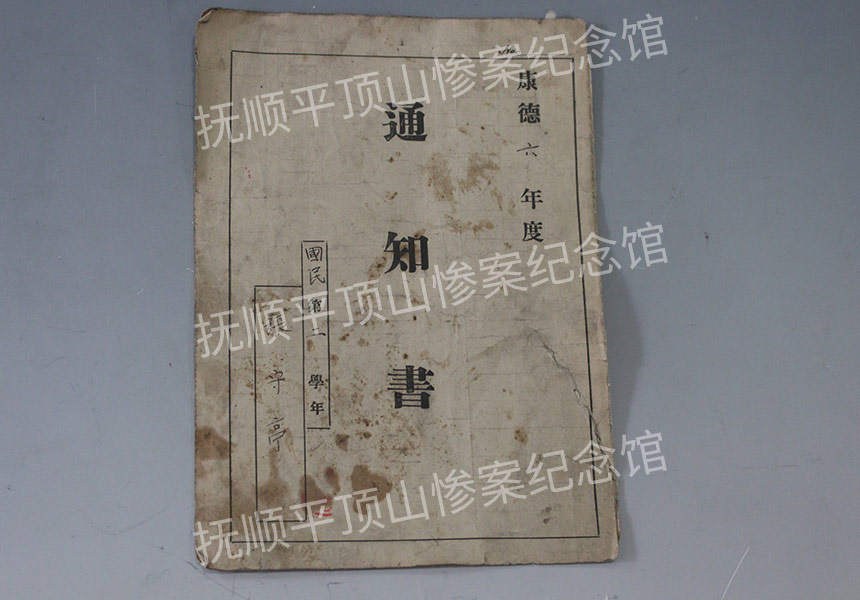 康德六年度
通知書
國民第二學年
守亭
抚顺平顶山惨案纪念馆
抚顺平顶山惨案纪念馆
抚顺平顶山惨案纪念馆